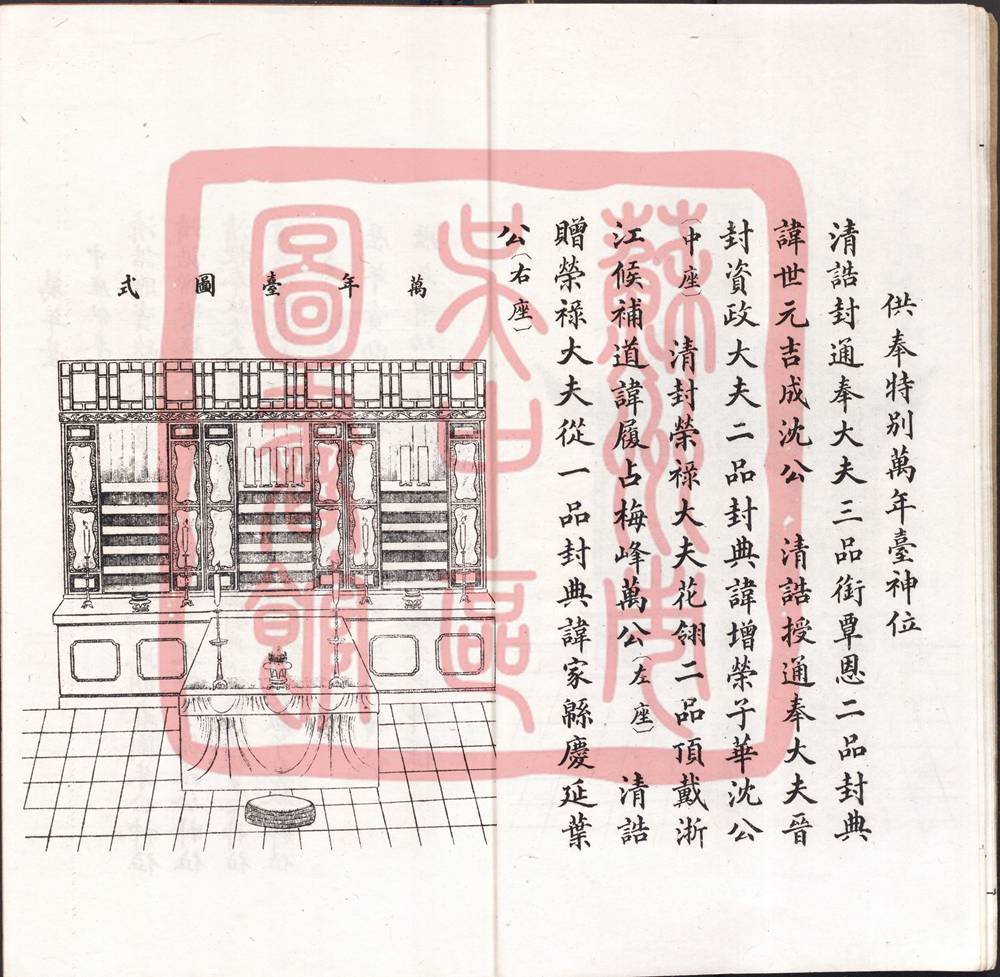 供奉特別萬年臺神位
清誥封通奉大夫三品銜覃恩二品封典
諱世元吉成沈公　清誥授通奉大夫晉
封資政大夫二品封典諱增榮子華沈公
（中座）　清封榮祿大夫花翎二品頂戴浙
江候補道諱履占梅峰萬公（左座）　清誥
贈榮祿大夫從一品封典諱家緜慶延葉
公（右座）
萬年臺圖式
蘇州市
吳中區
圖書館